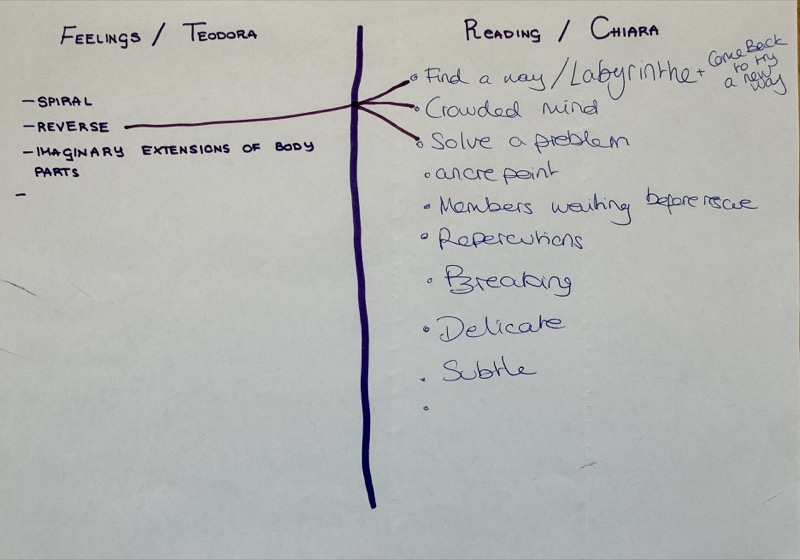 FEELINGS / TEODORA
- SPIRAL
- REVERSE
- IMAGINARY EXTENSIONS OF BODY
PARTS
-
READING / CHIARA
Find a way / Labyrinthe + Come Back
to try
a new
way
Crowded mind
Solve a problem
ancre point
Members waiting before rescue
Repercutions
Breaking
Delicate
Subtle